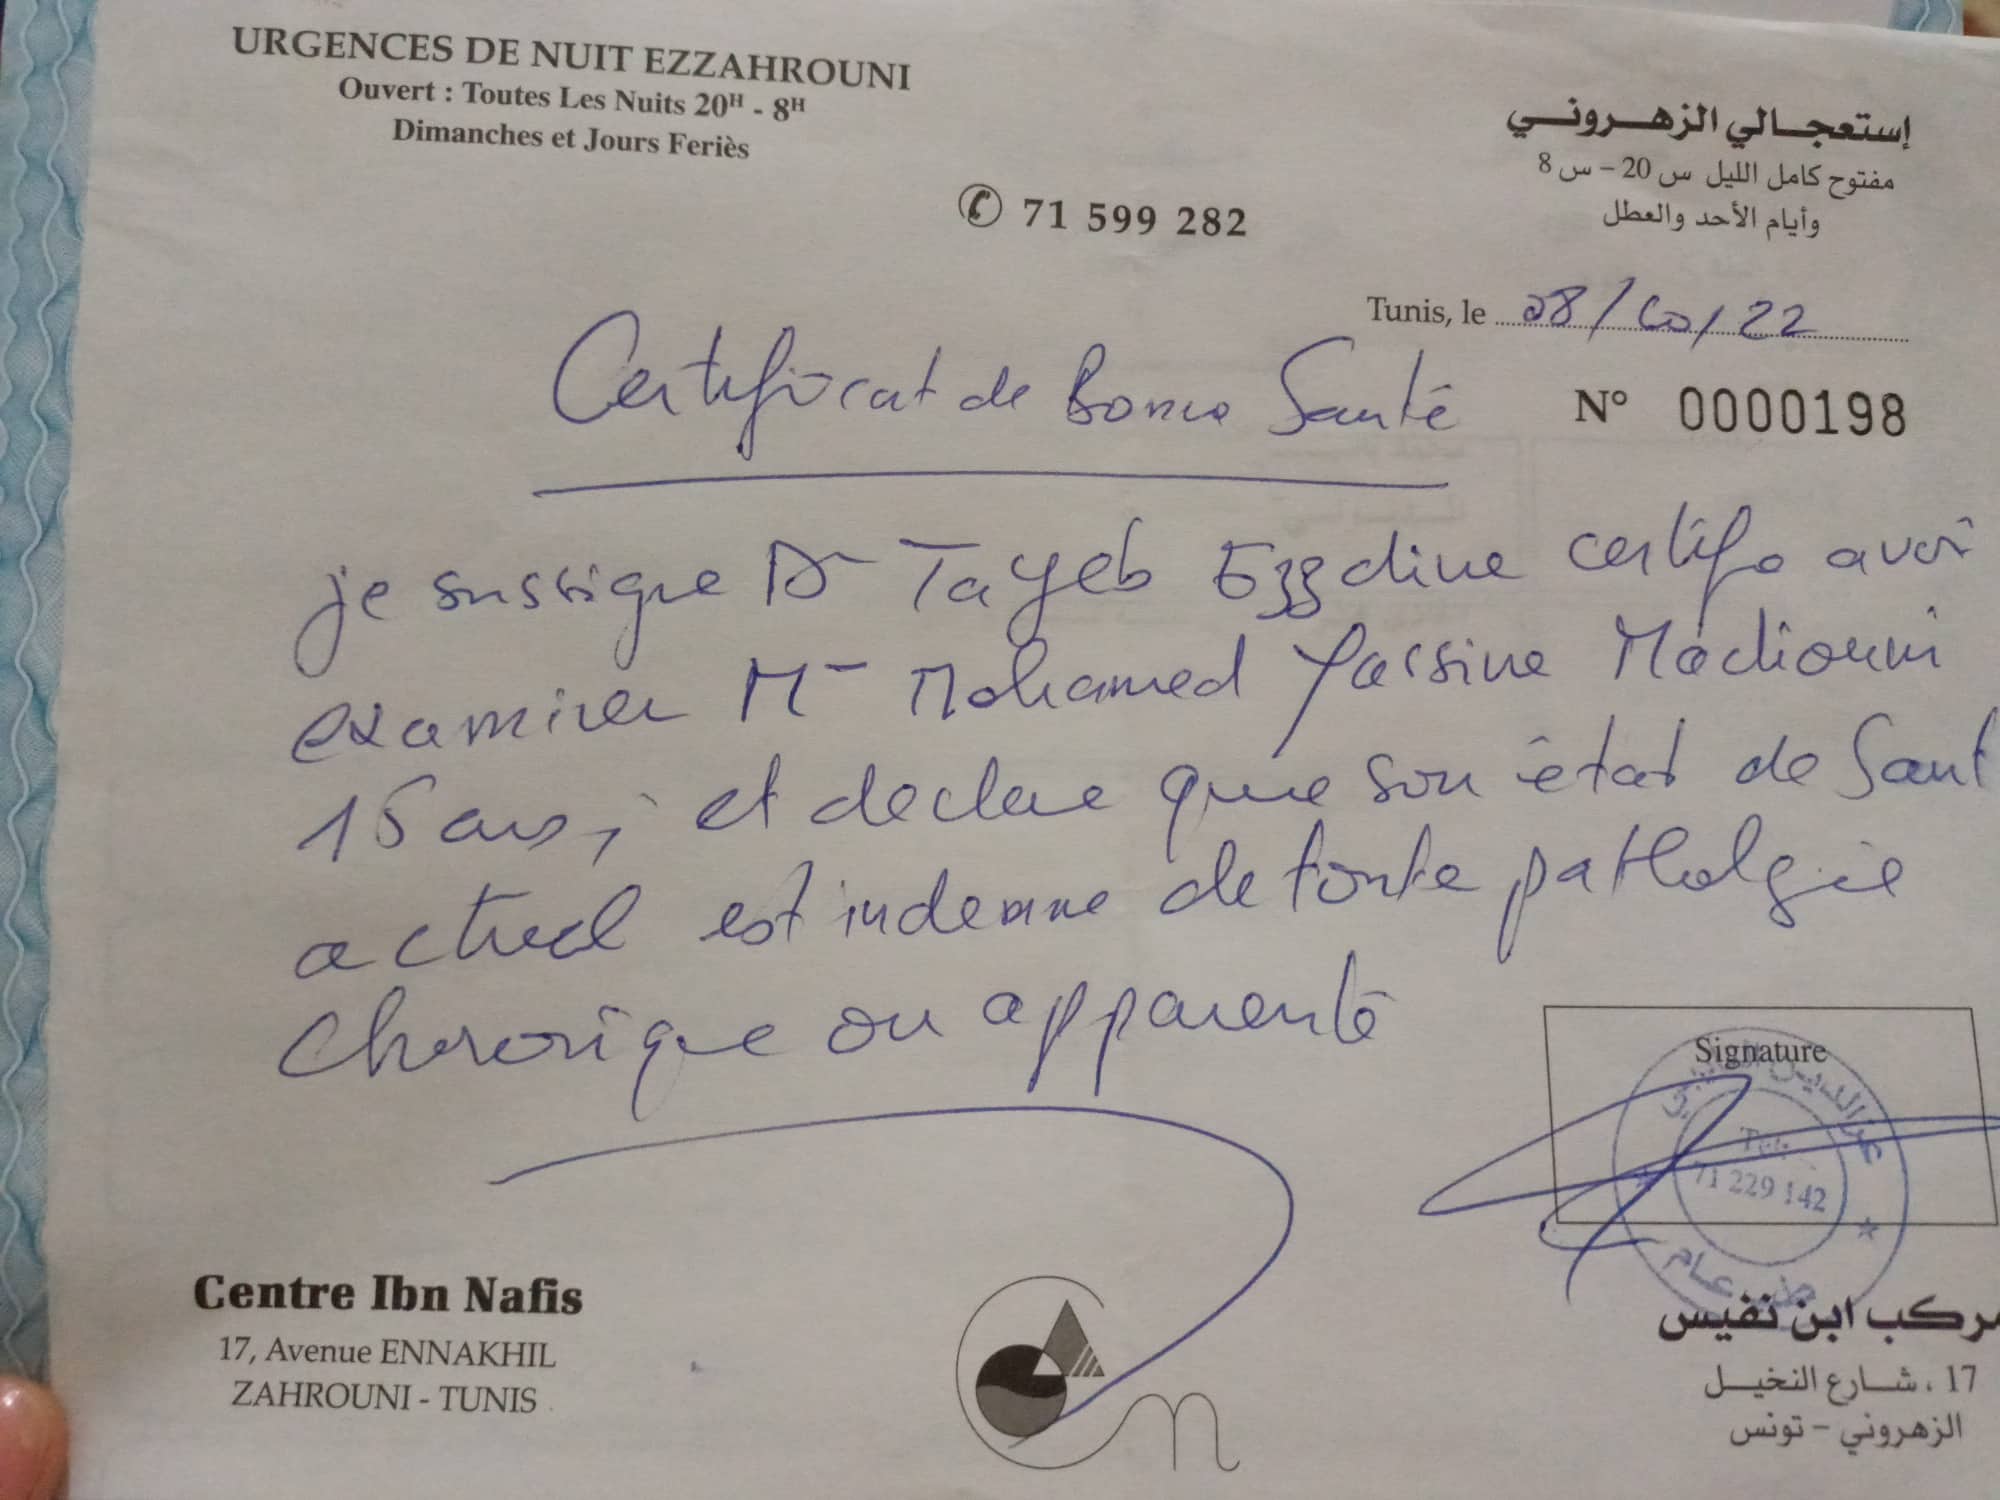 URGENCES DE NUIT EZZAHROUNI
Ouvert : Toutes Les Nuits 20H - 8H
Dimanches et Jours Feriès
إستعجالي الزهروني
مفتوح كامل الليل س 20 - س 8
وأيام الأحد والعطل
✆ 71 599 282
Tunis, le 08/10/22
Certificat de Bonne Santé
N° 0000198
je sussigne Dr Tayeb Ezzdine certife avoir
examiner Mr Mohamed Yassine Madiouni
15 ans, et declare que son état de Sant
actuel est indemne de toute pathologie
chronique ou apparenté
Signature
Tél:
71 229 142
طب عام
Centre Ibn Nafis
17, Avenue ENNAKHIL
ZAHROUNI - TUNIS
مركب ابن نفيس
17 ، شارع النخيل
الزهروني - تونس